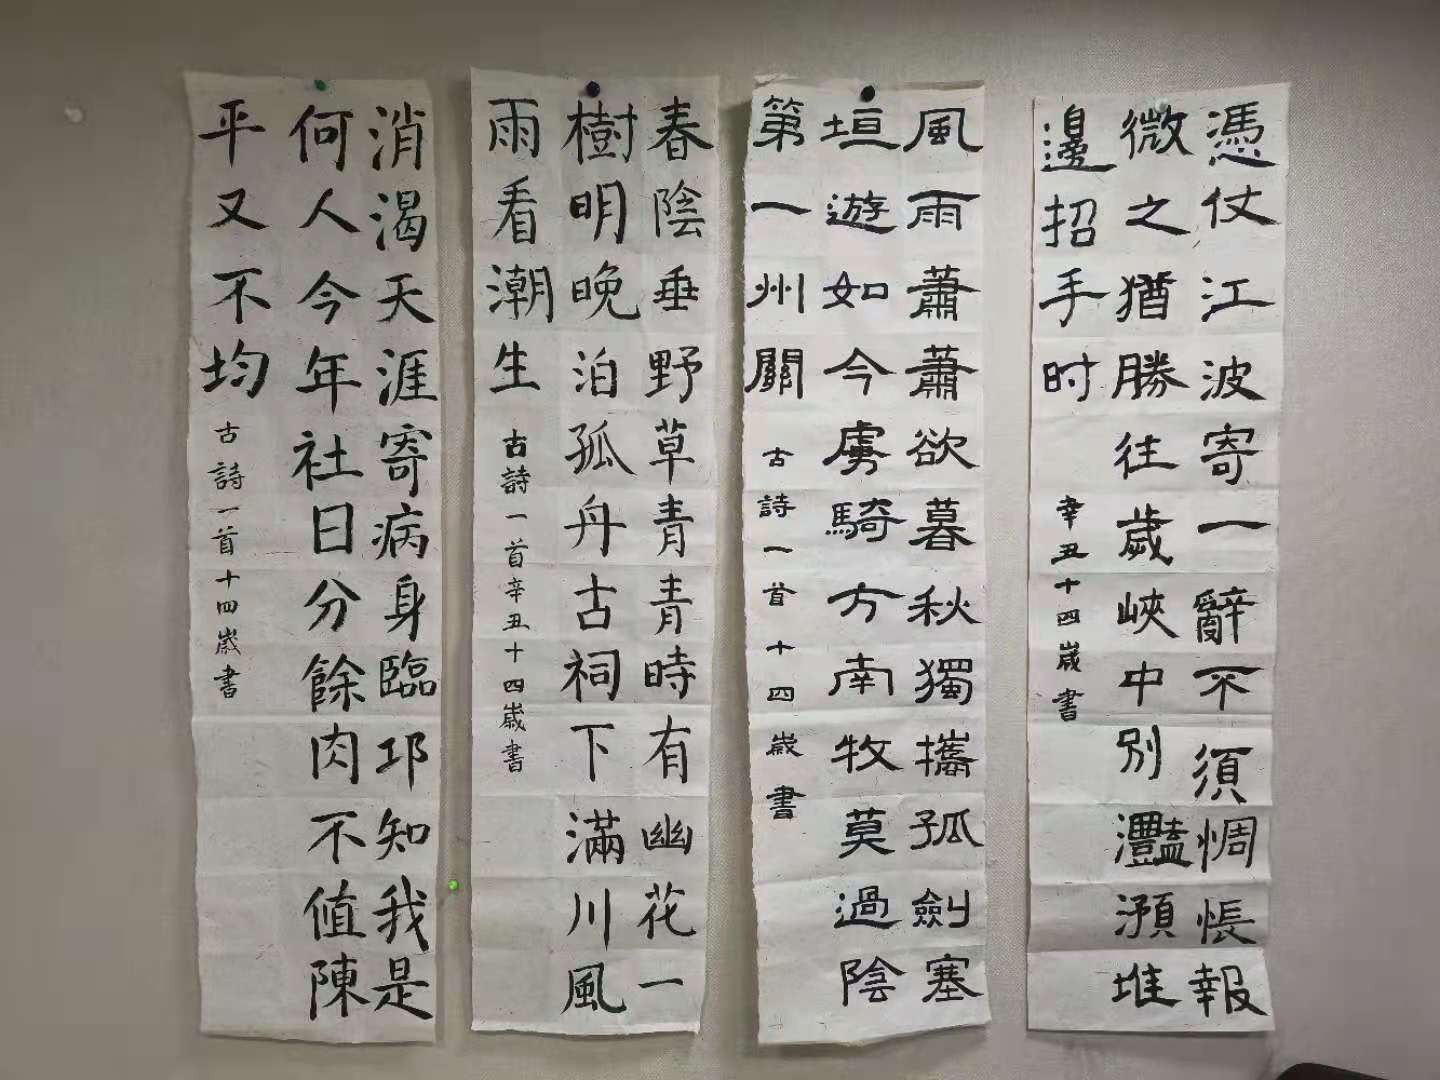 憑仗江波寄一辭不須惆悵報
微之猶勝往歲峽中別灩澦堆
邊招手时 辛丑十四歲書
風雨蕭蕭欲暮秋獨攜孤劍塞
垣遊如今虜騎方南牧莫過陰
第一州關 古詩一首十四歲書
春陰垂野草青青時有幽花一
樹明晚泊孤舟古祠下滿川風
雨看潮生 古詩一首辛丑十四歲書
消渴天涯寄病身臨邛知我是
何人今年社日分餘肉不值陳
平又不均 古詩一首十四歲書